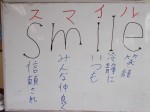 スマイル
smile
笑顔
いつも
冷静に
みんな仲良く
信頼され